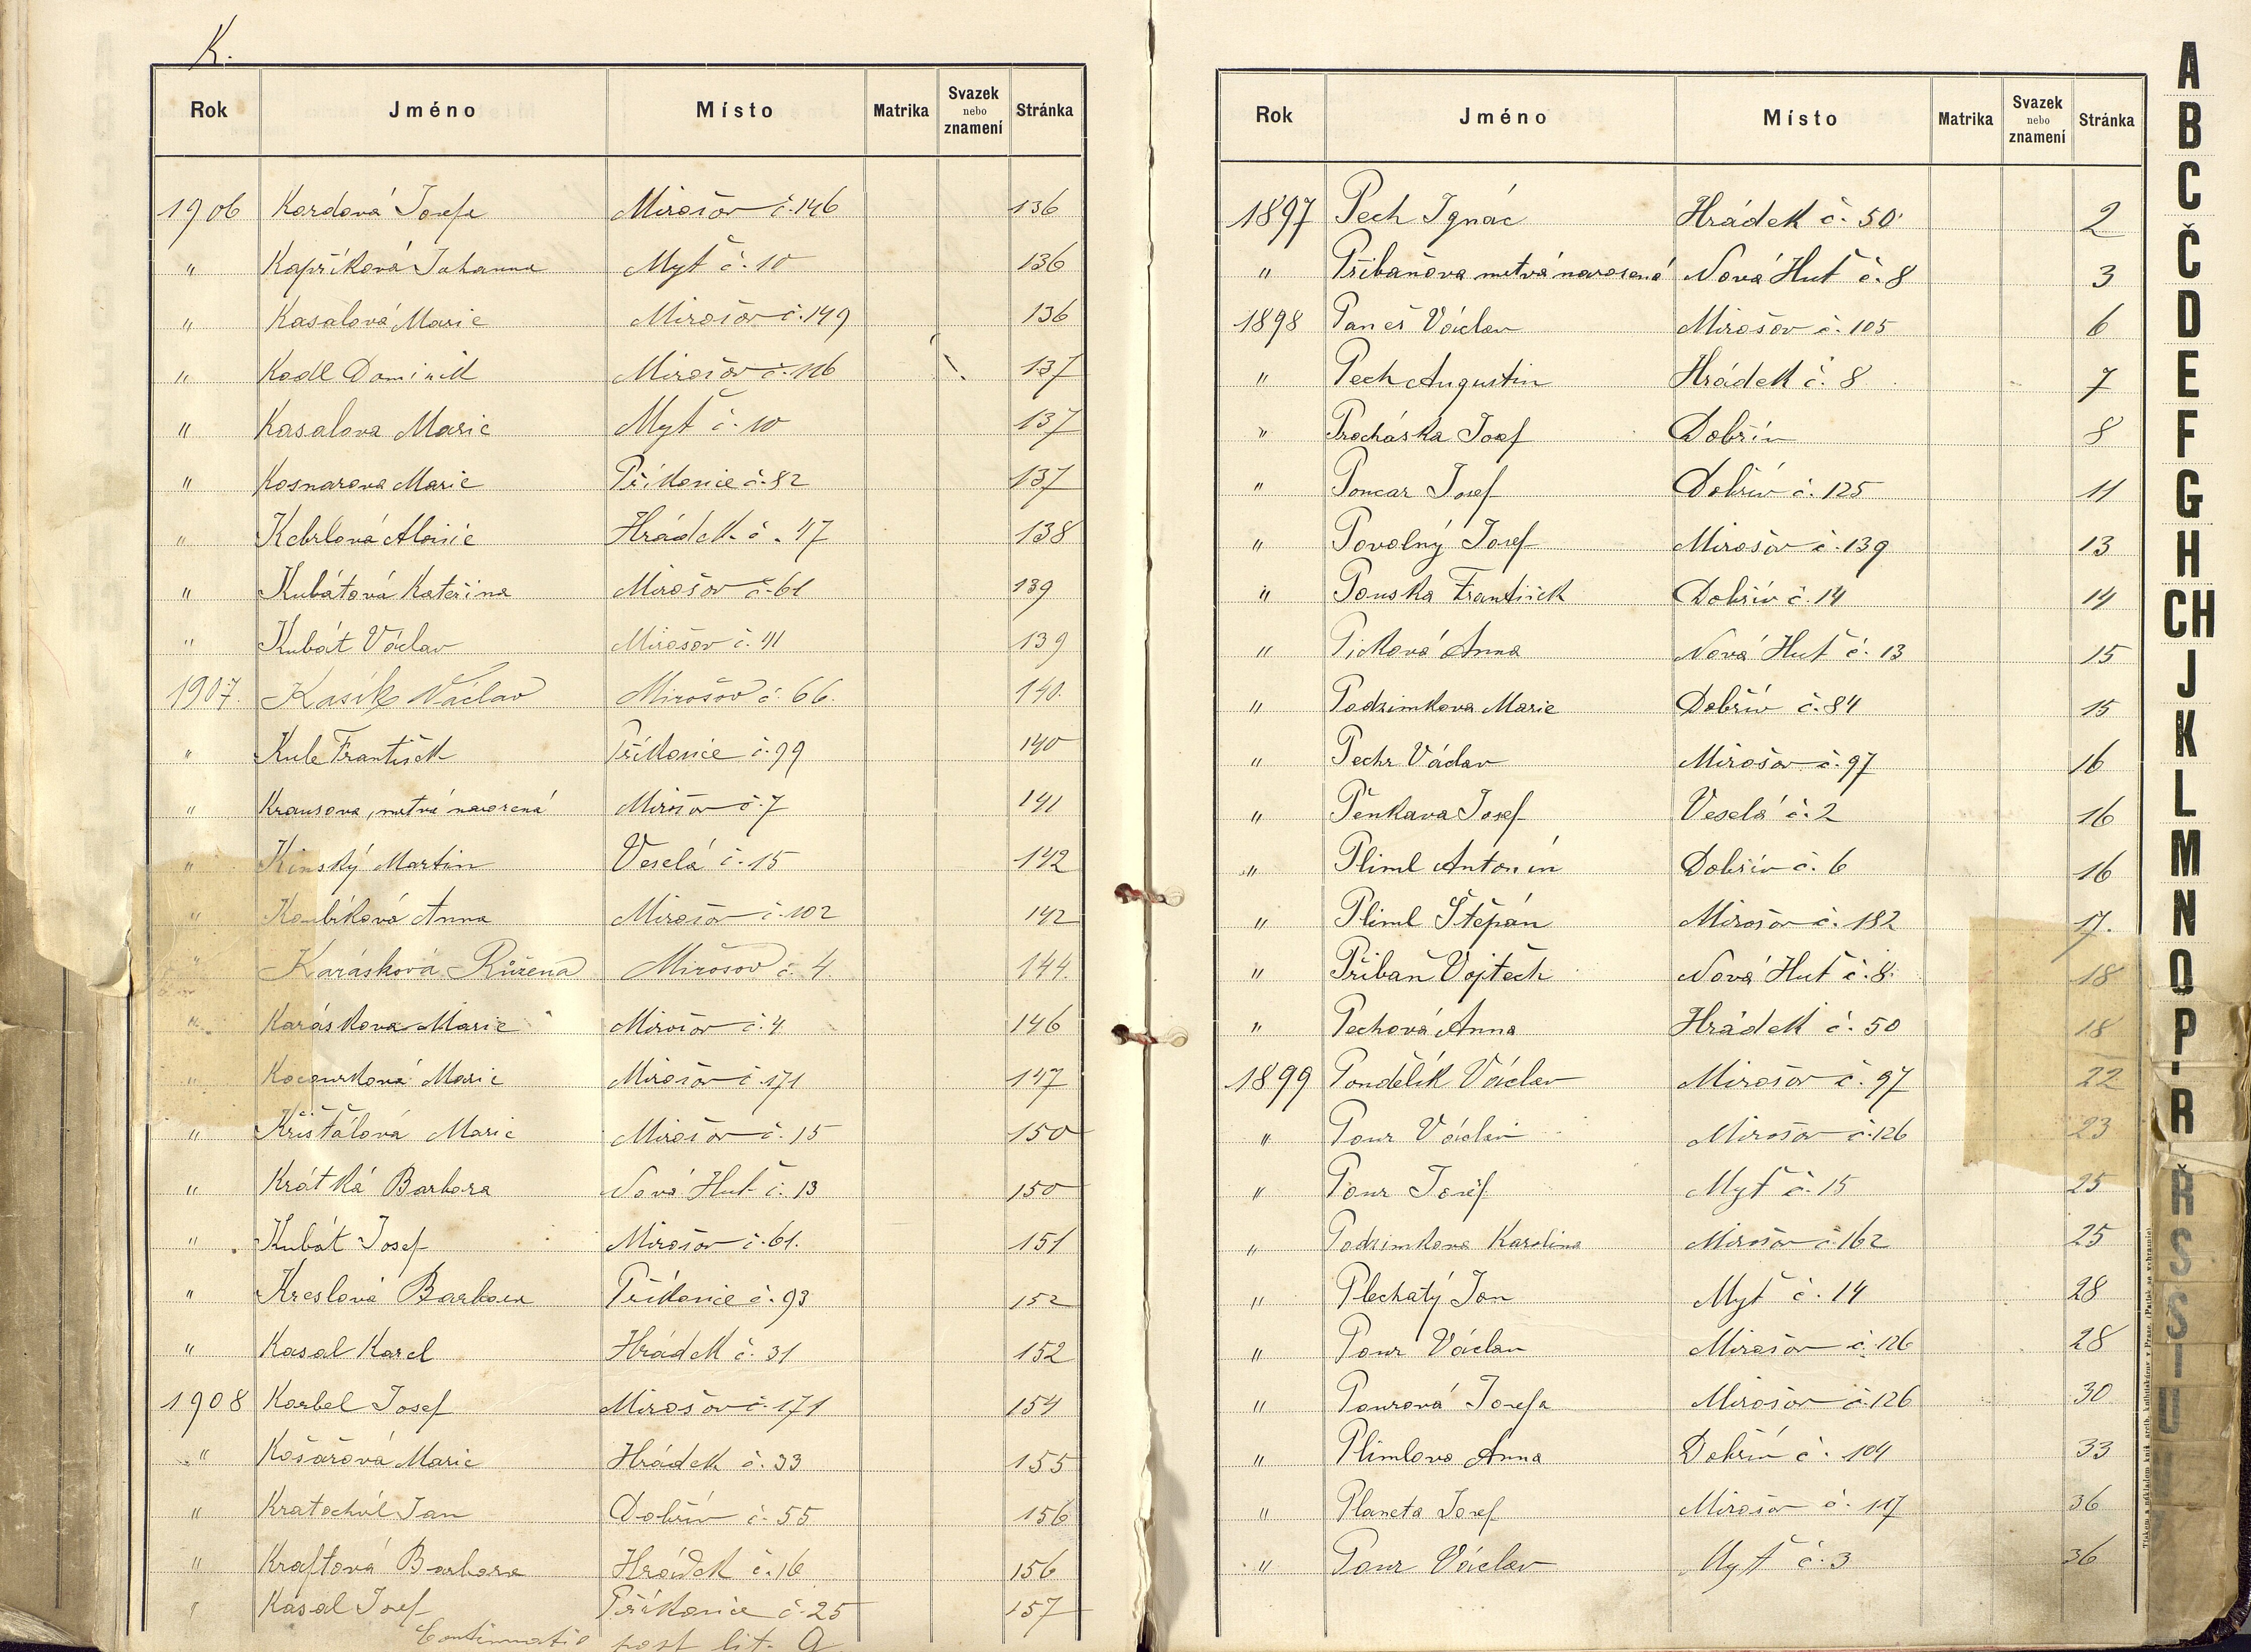 K.
Rok Jméno Místo Matrika Svazek nebo znamení Stránka
1906 Kordová Josefa Mirošov č. 146 136
" Kapříková Johanna Myť č. 10 136
" Kasalová Marie Mirošov č. 149 136
" Kodl Dominik Mirošov č. 116 137
" Kasalova Marie Myť č. 10 137
" Kosnarova Marie Příkosice č. 82 137
" Kebrlová Marie Hrádek č. 47 138
" Kubátová Kateřina Mirošov č. 61 139
" Kubát Václav Mirošov č. 41 139
1907. Kasík Václav Mirošov č. 66. 140.
" Kule František Příkosice č. 99 140
" Krausova, mrtvá narozená Mirošov č. 7 141
" Kinský Martin Veselá č. 15 142
" Koubíková Anna Mirošov č. 102 142
" Karásková Růžena Mirošov č. 4. 144.
" Karáskova Marie Mirošov č. 4 146
" Kocourková Marie Mirošov č. 171 147
" Křišťálová Marie Mirošov č. 15 150
" Krátká Barbora Nová Huť č. 13 150
" Kubát Josef Mirošov č. 61. 151
" Kreslová Barbora Příkosice č. 93 152
" Kasal Karel Hrádek č. 31 152
1908 Korbel Josef Mirošov č. 171 154
" Košařová Marie Hrádek č. 33 155
" Kratochvíl Jan Dobřív č. 55 156
" Kraftová Barbora Hrádek č. 16 156
" Kasal Josef Příkosice č. 25 157
Continuatio post lit. Q
Rok Jméno Místo Matrika Svazek nebo znamení Stránka
1897 Pech Ignác Hrádek č. 50 2
" Přibaňova mrtvá narozená Nová Huť č. 8 3
1898 Paneš Václav Mirošov č. 105 6
" Pech Augustin Hrádek č. 8 7
" Procháska Josef Dobřív 8
" Poncar Josef Dobřív č. 125 11
" Povolný Josef Mirošov č. 139 13
" Pouska František Dobřív č. 14 14
" Picková Anna Nová Huť č. 13 15
" Podzimkova Marie Dobřív č. 84 15
" Pechr Václav Mirošov č. 97 16
" Pěnkava Josef Veselá č. 2 16
" Pliml Antonín Dobřív č. 6 16
" Pliml Štěpán Mirošov č. 182 17.
" Přibaň Vojtěch Nová Huť č. 8. 18
" Pechová Anna Hrádek č. 50 18
1899 Pondělík Václav Mirošov č. 97 22
" Pour Václav Mirošov č. 126 23
" Pour Josef Myť č. 15 25
" Podzimkova Karolina Mirošov č. 162 25
" Plechatý Jan Myť č. 14 28
" Pour Václav Mirošov č. 126 28
" Pourová Josefa Mirošov č. 126 30
" Plimlova Anna Dobřív č. 104 33
" Planeta Josef Mirošov č. 117 36
" Pour Václav Myť č. 3 36
A
B
C
Č
D
E
F
G
H
CH
J
K
L
M
N
O
P
R
Ř
S
Š
T
U